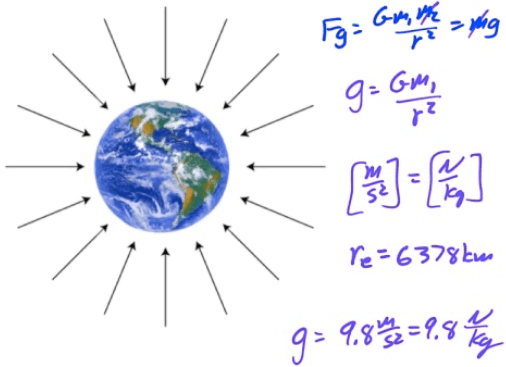 Fg = Gm₁m₂/r² = mg
g = Gm₁/r²
[m/s²] = [N/kg]
rₑ = 6378km
g = 9.8 m/s² = 9.8 N/kg